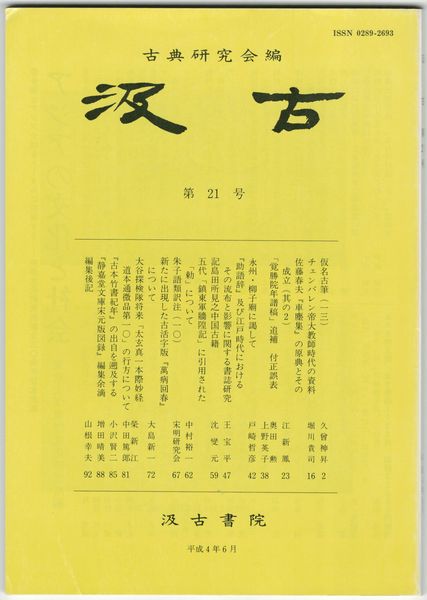 ISSN 0289-2693
古典研究会編
汲古
第21号
仮名古筆(一三) 久曾神昇 2
チェンバレン帝大教師時代の資料 堀川貴司 16
佐藤春夫『車塵集』の原典とその
成立(其の2) 江新鳳 23
「覚勝院年譜稿」追補 付正誤表 奥田勲 上野英子 38
永州・柳子廟に謁して 戸崎哲彦 42
『助語辞』及び江戸時代における
その流布と影響に関する書誌研究 王宝平 47
記島田所見之中国古籍 沈燮元 59
五代「鎮東軍牆隍記」に引用された
「勅」について 中村裕一 62
朱子語類訳注(一〇) 宋明研究会 67
新たに出現した古活字版『萬病回春』
について 大島新一 72
大谷探検隊将来「太玄真一本際妙経
道本通微品第一〇」の行方について 榮新江 中田篤郎 81
『古本竹書紀年』の出自を遡及する 小沢賢二 85
『静嘉堂文庫宋元版図録』編集余滴 増田晴美 88
編集後記 山根幸夫 92
汲古書院
平成4年6月